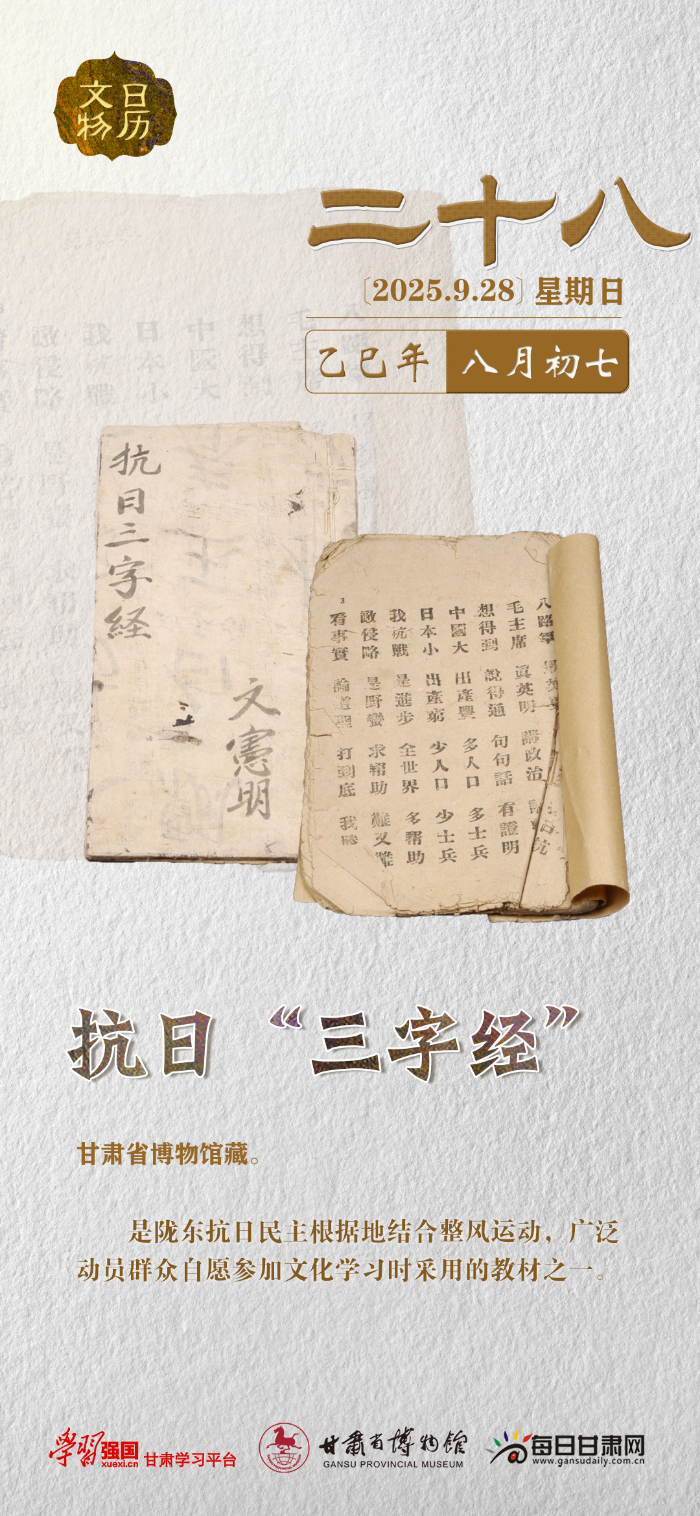 文物
日历
二十八
〔2025.9.28〕星期日
乙巳年 八月初七
抗日三字经
文憲明
八路軍
毛主席 真英明 講政治
想得到 說得通 句句話 有證明
中國大 出產豐 多人口 多士兵
日本小 出產窮 少人口 少士兵
我抗戰 是進步 全世界 多幫助
敵侵略 是野蠻 求幫助 難又難
看事實 論道理 打到底
3
抗日“三字经”
甘肃省博物馆藏。
是陇东抗日民主根据地结合整风运动，广泛
动员群众自愿参加文化学习时采用的教材之一。
学习强国
xuexi.cn
甘肃学习平台
甘肃省博物馆
GANSU PROVINCIAL MUSEUM
每日甘肃网
www.gansudaily.com.cn